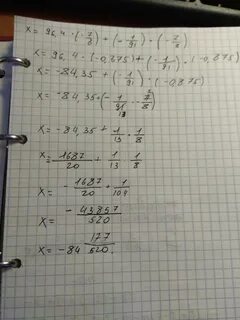 x = 96,4 · (-7/8) + (-1/91) · (-7/8)
x = 96,4 · (-0,875) + (-1/91) · (-0,875)
x = -84,35 + (-1/91) · (-0,875)
x = -84,35 · (-1/91 · -7/8)
13
x = -84,35 + 1/13 · 1/8
x = 1687/20 + 1/13 · 1/8
x = -1687/20 + 1/104
x = -43857/520
x = -84 177/520.